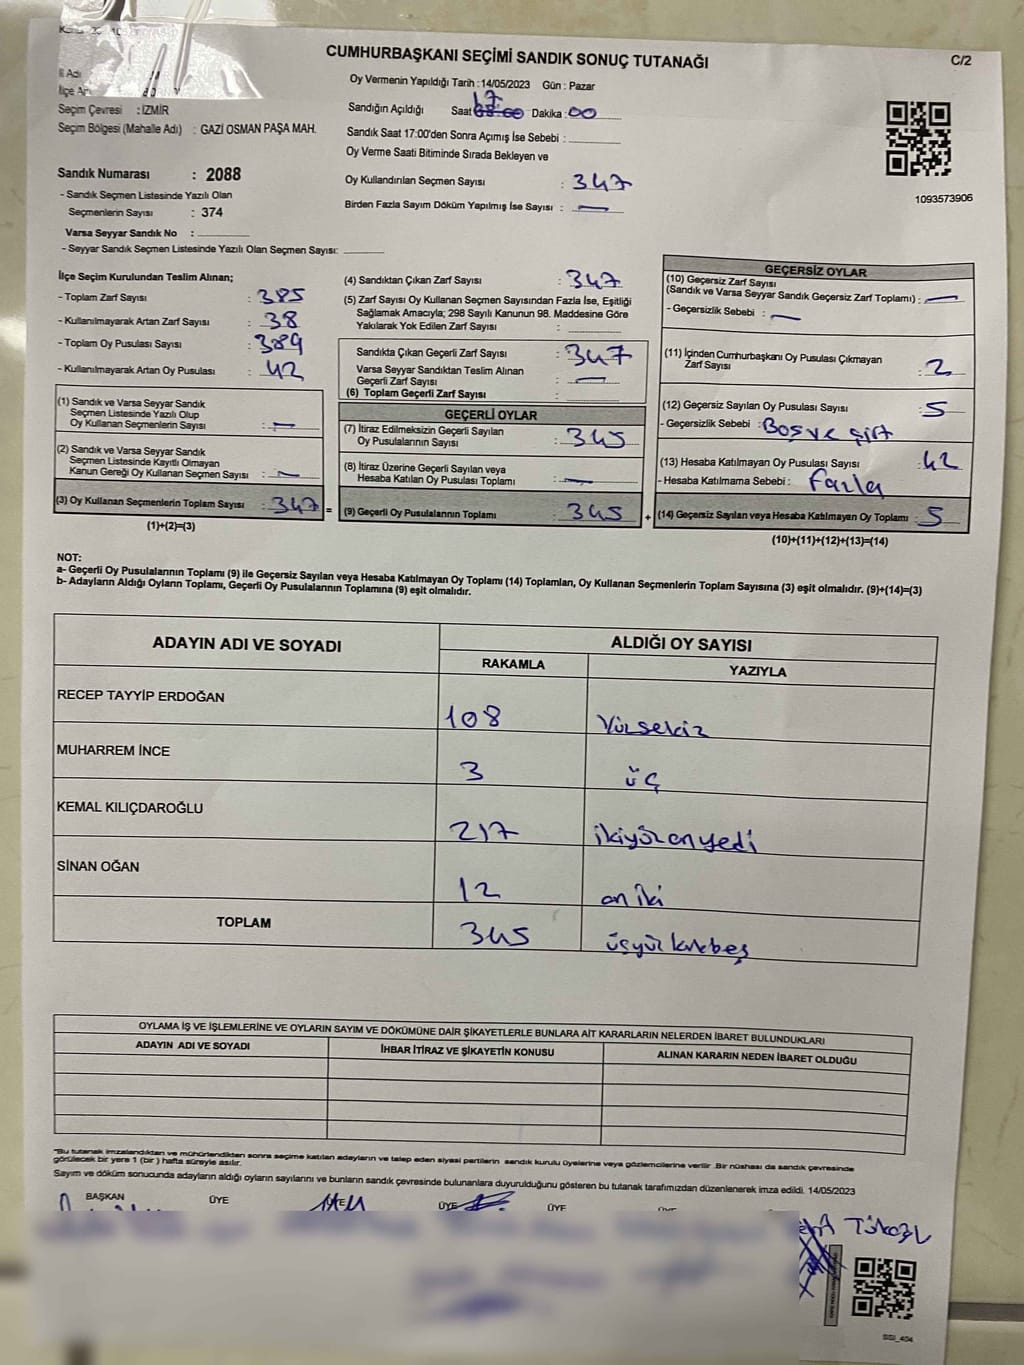 CUMHURBAŞKANI SEÇİMİ SANDIK SONUÇ TUTANAĞI
C/2
İl Adı
Seçim Çevresi : İZMİR
Seçim Bölgesi (Mahalle Adı) : GAZİ OSMAN PAŞA MAH.
Sandık Numarası : 2088
- Sandık Seçmen Listesinde Yazılı Olan
Seçmenlerin Sayısı : 374
Varsa Seyyar Sandık No :
- Seyyar Sandık Seçmen Listesinde Yazılı Olan Seçmen Sayısı:
Oy Vermenin Yapıldığı Tarih : 14/05/2023 Gün : Pazar
Sandığın Açıldığı Saat 17 Dakika : 00
Sandık Saat 17:00'den Sonra Açımış İse Sebebi :
Oy Verme Saati Bitiminde Sırada Bekleyen ve
Oy Kullandırılan Seçmen Sayısı : 347
Birden Fazla Sayım Döküm Yapılmış İse Sayısı : —
1093573906
İlçe Seçim Kurulundan Teslim Alınan;
- Toplam Zarf Sayısı : 385
- Kullanılmayarak Artan Zarf Sayısı : 38
- Toplam Oy Pusulası Sayısı : 389
- Kullanılmayarak Artan Oy Pusulası : 42
(1) Sandık ve Varsa Seyyar Sandık
Seçmen Listesinde Yazılı Olup
Oy Kullanan Seçmenlerin Sayısı : —
(2) Sandık ve Varsa Seyyar Sandık
Seçmen Listesinde Kayıtlı Olmayan
Kanun Gereği Oy Kullanan Seçmen Sayısı : —
(3) Oy Kullanan Seçmenlerin Toplam Sayısı : 347 =
(1)+(2)=(3)
(4) Sandıktan Çıkan Zarf Sayısı : 347
(5) Zarf Sayısı Oy Kullanan Seçmen Sayısından Fazla İse, Eşitliği
Sağlamak Amacıyla; 298 Sayılı Kanunun 98. Maddesine Göre
Yakılarak Yok Edilen Zarf Sayısı :
Sandıkta Çıkan Geçerli Zarf Sayısı : 347
Varsa Seyyar Sandıktan Teslim Alınan
Geçerli Zarf Sayısı : —
(6) Toplam Geçerli Zarf Sayısı :
GEÇERLİ OYLAR
(7) İtiraz Edilmeksizin Geçerli Sayılan
Oy Pusulalarının Sayısı : 345
(8) İtiraz Üzerine Geçerli Sayılan veya
Hesaba Katılan Oy Pusulası Toplamı : —
(9) Geçerli Oy Pusulalarının Toplamı : 345 +
GEÇERSİZ OYLAR
(10) Geçersiz Zarf Sayısı
(Sandık ve Varsa Seyyar Sandık Geçersiz Zarf Toplamı) : —
- Geçersizlik Sebebi : —
(11) İçinden Cumhurbaşkanı Oy Pusulası Çıkmayan
Zarf Sayısı : 2
(12) Geçersiz Sayılan Oy Pusulası Sayısı : 5
- Geçersizlik Sebebi : Boş ve çift
(13) Hesaba Katılmayan Oy Pusulası Sayısı : 42
- Hesaba Katılmama Sebebi : Fazla
(14) Geçersiz Sayılan veya Hesaba Katılmayan Oy Toplamı : 5
(10)+(11)+(12)+(13)=(14)
NOT:
a- Geçerli Oy Pusulalarının Toplamı (9) ile Geçersiz Sayılan veya Hesaba Katılmayan Oy Toplamı (14) Toplamları, Oy Kullanan Seçmenlerin Toplam Sayısına (3) eşit olmalıdır. (9)+(14)=(3)
b- Adayların Aldığı Oyların Toplamı, Geçerli Oy Pusulalarının Toplamına (9) eşit olmalıdır.
ADAYIN ADI VE SOYADI ALDIĞI OY SAYISI
RAKAMLA YAZIYLA
RECEP TAYYİP ERDOĞAN 108 Yüzsekiz
MUHARREM İNCE 3 üç
KEMAL KILIÇDAROĞLU 217 ikiyüzonyedi
SİNAN OĞAN 12 on iki
TOPLAM 345 üçyüz kırkbeş
OYLAMA İŞ VE İŞLEMLERİNE VE OYLARIN SAYIM VE DÖKÜMÜNE DAİR ŞİKAYETLERLE BUNLARA AİT KARARLARIN NELERDEN İBARET BULUNDUKLARI
ADAYIN ADI VE SOYADI İHBAR İTİRAZ VE ŞİKAYETİN KONUSU ALINAN KARARIN NEDEN İBARET OLDUĞU
"Bu tutanak imzalandıktan ve mühürlendikten sonra seçime katılan adayların ve talep eden siyasi partilerin sandık kurulu üyelerine veya gözlemcilerine verilir. Bir nüshası da sandık çevresinde
görülecek bir yere 1 (bir) hafta süreyle asılır.
Sayım ve döküm sonucunda adayların aldığı oyların sayılarını ve bunların sandık çevresinde bulunanlara duyurulduğunu gösteren bu tutanak tarafımızdan düzenlenerek imza edildi. 14/05/2023
BAŞKAN ÜYE ÜYE ÜYE ÜYE
SSI_404